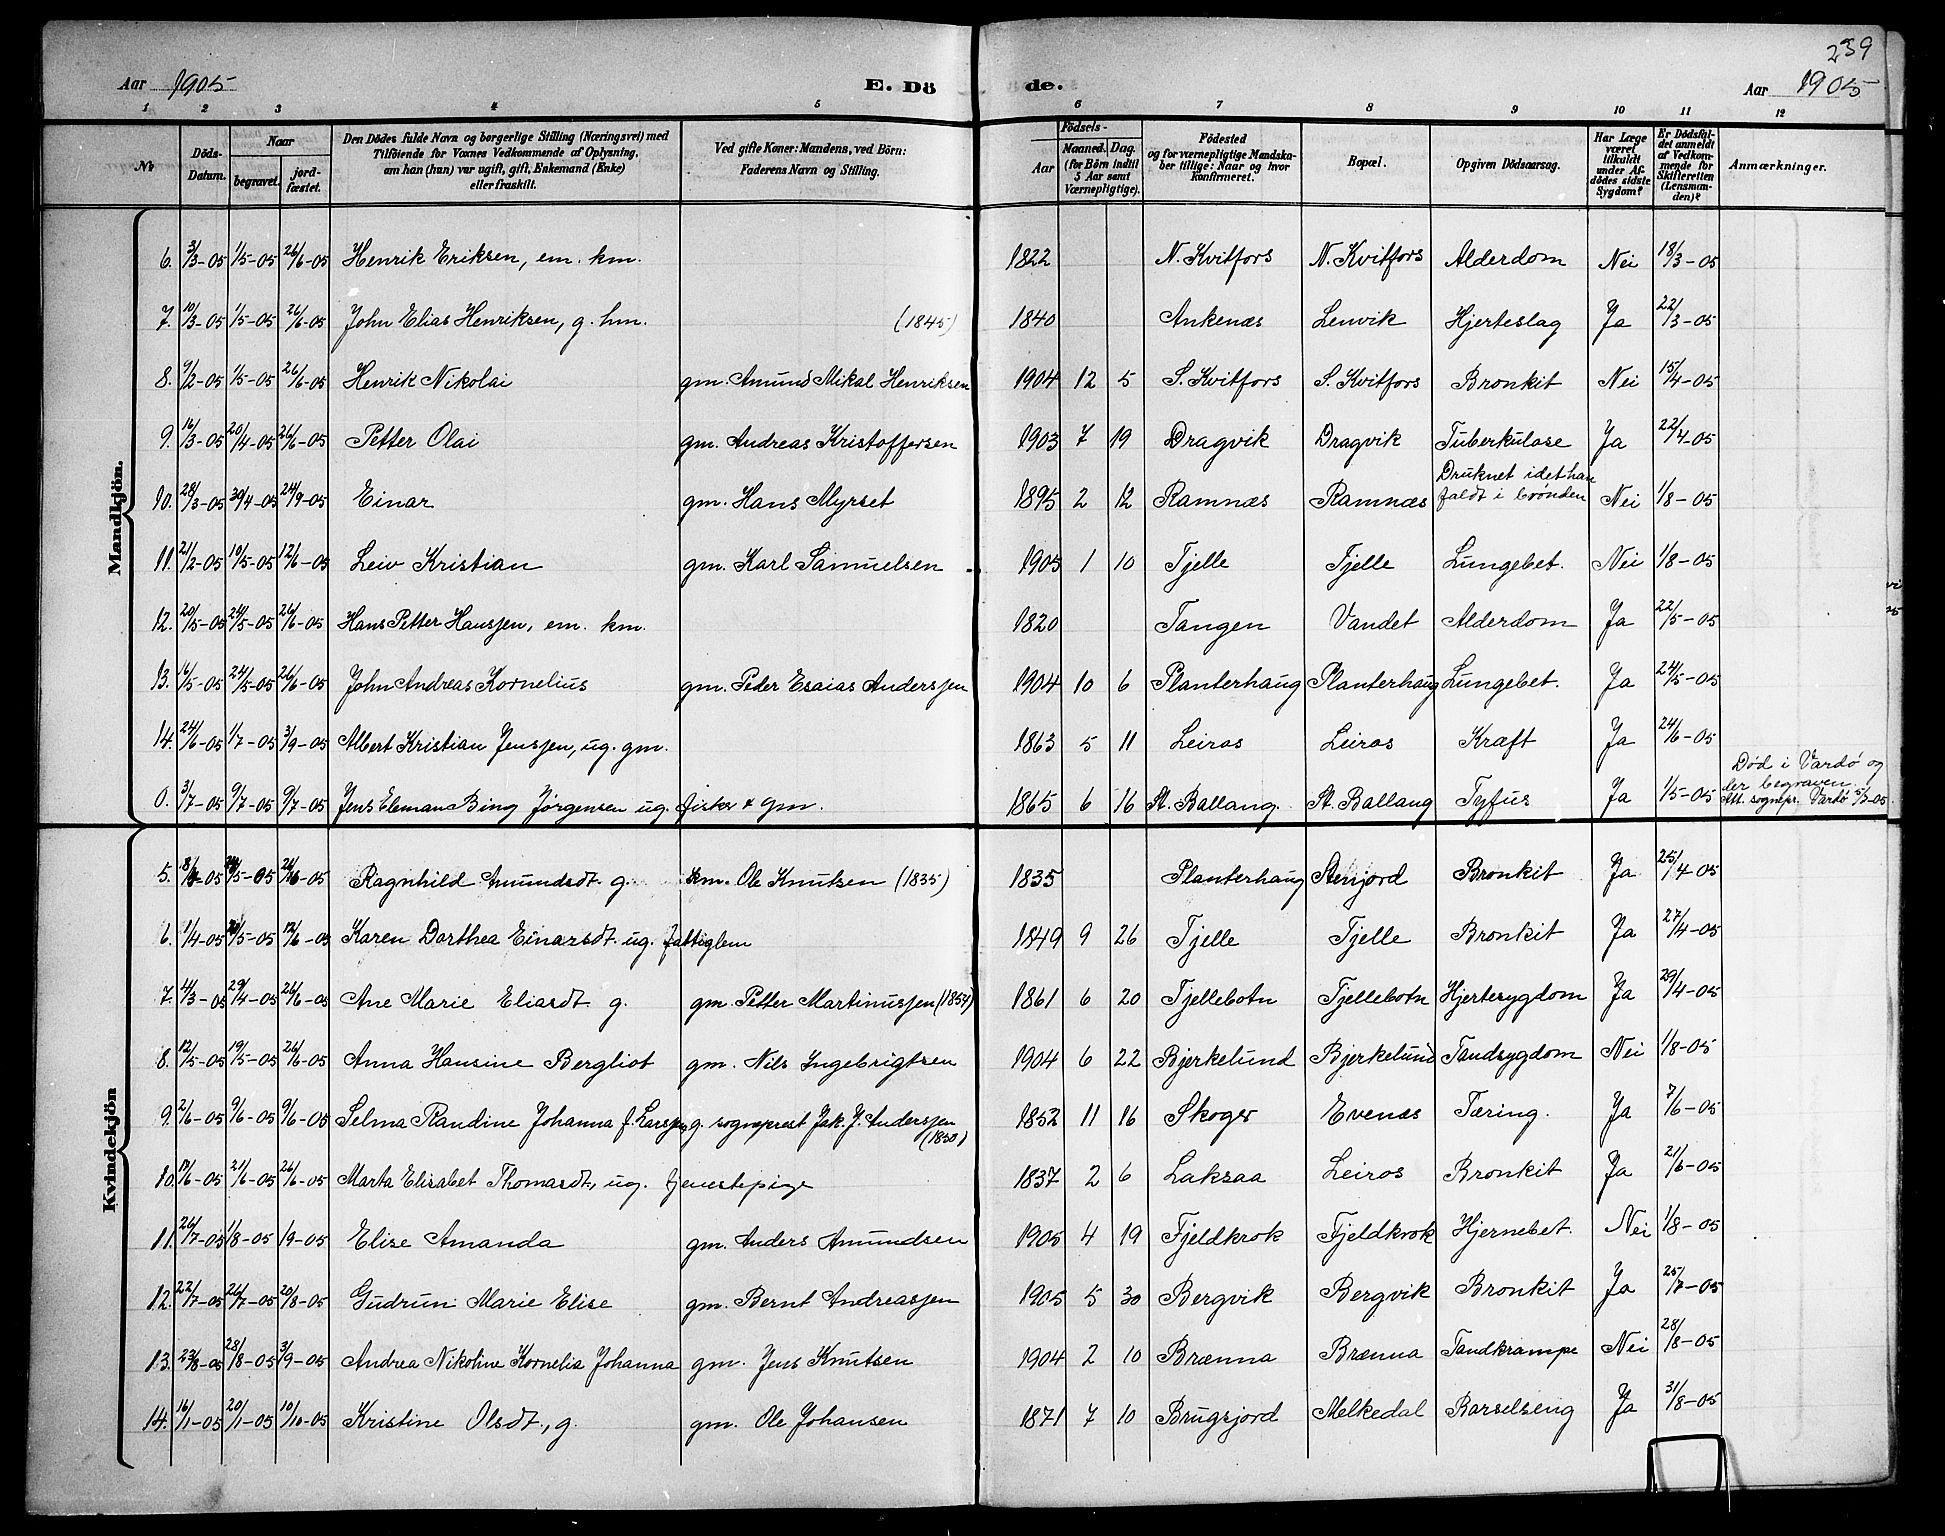 239
Aar 1905 E. Dö de. Aar 1905
1 2 3 4 5 6 7 8 9 10 11 12
№ Döds-Datum. Naar begravet. jord-fæstet. Den Dödes fulde Navn og borgerlige Stilling (Næringsvei) med Tilföiende for Voxnes Vedkommende af Oplysning, om han (hun) var ugift, gift, Enkemand (Enke) eller fraskilt. Ved gifte Koner: Mandens, ved Börn: Faderens Navn og Stilling. Födsels- Aar Maaned. Dag. (for Börn indtil 5 Aar samt Værnepligtige). Födested og for værnepligtige Mandska-ber tillige: Naar og hvor konfirmeret. Bopæl. Opgiven Dödsaarsag. Har Læge været tilkaldt under Af-dödes sidste Sygdom? Er Dödsfal-det anmeldt af Vedkom-mende for Skifteretten (Lensman-den)? Anmærkninger.
Mandkjön.
6. 3/3-05 1/5-05 26/6-05 Henrik Eriksen, em. km. 1822 N. Kvitfors N. Kvitfors Alderdom Nei 18/3-05
7. 10/3-05 1/5-05 26/6-05 John Elias Henriksen, g. hm. (1845) 1840 Ankenæs Lenvik Hjerteslag Ja 22/3-05
8. 9/2-05 1/5-05 26/6-05 Henrik Nikolai gm. Amund Mikal Henriksen 1904 12 5 S. Kvitfors S. Kvitfors Bronkit Nei 15/4-05
9. 16/3-05 20/4-05 26/6-05 Petter Olai gm. Andreas Kristoffersen 1903 7 19 Dragvik Dragvik Tuberkulose Ja 22/4-05
10. 28/3-05 30/4-05 24/9-05 Einar gm. Hans Myrset 1895 2 12 Ramnæs Ramnæs Druknet idet han faldt i brønden Nei 1/8-05
11. 21/2-05 10/5-05 12/6-05 Leiv Kristian gm. Karl Samuelsen 1905 1 10 Tjelle Tjelle Lungebet. Nei 1/8-05
12. 20/5-05 24/5-05 26/6-05 Hans Petter Hansjen, em. km. 1820 Tangen Vandet Alderdom Ja 22/5-05
13. 16/5-05 24/5-05 26/6-05 John Andreas Kornelius gm. Peder Esaias Andersjen 1904 10 6 Planterhaug Planterhaug Lungebet. Ja 24/5-05
14. 24/6-05 1/7-05 3/9-05 Albert Kristian Jensjen, ug. gm. 1863 5 11 Leiros Leiros Kræft Ja 24/6-05
0. 3/7-05 9/7-05 9/7-05 Jens Elemans Bing Jørgensen ug. fisker & gm. 1865 6 16 St. Ballang. St. Ballang Tyfus Ja 1/5-05 Død i Vardø og der begraven. Att. sognepr. Vardø 5/7-05
Kvindekjön
5. 05 /5-05 26/6-05 Ragnhild Amundsdt. g. km. Ole Knutsen (1835) 1835 Planterhaug Stenjord Bronkit Ja 25/4 05
6. 1/4-05 /5-05 12/6-05 Karen Dorthea Einarsdt. ug. fattiglem 1849 9 26 Tjelle Tjelle Bronkit Ja 27/4-05
7. 4/3-05 29/4-05 26/6-05 Ane Marie Eliasdt g. gm. Petter Martinusjen (1857) 1861 6 20 Tjellebotn Tjellebotn Hjertesygdom Ja 29/4-05
8. 12/5-05 19/5-05 26/6-05 Anna Hansine Bergliot gm. Nils Ingebrigtsen 1904 6 22 Bjerkelund Bjerkelund Tandsygdom Nei 1/8-05
9. 2/6-05 9/6-05 9/6-05 Selma Randine Johanna f. Larsjen g. sogneprest Jak. J. Andersjen (1850) 1852 11 16 Skoger Evenæs Tæring. Ja 7/6-05
10. 17/6-05 21/6-05 26/6-05 Marta Elisabet Thomasdt., ug. tjenestepige 1837 2 6 Laksaa Leiros Bronkit Ja 21/6-05
11. 26/7-05 1/8-05 1/9-05 Elise Amanda gm. Anders Amundsen 1905 4 19 Fjeldkrok Fjeldkrok Hjernebet. Nei 1/8-05
12. 22/7-05 26/7-05 20/8-05 Gudrun Marie Elise gm. Bernt Andreasjen 1905 5 30 Bergvik Bergvik Bronkit Ja 25/7-05
13. 23/8-05 28/8-05 3/9-05 Andrea Nikoline Kornelia Johanna gm. Jens Knutsen 1904 2 10 Brænna Brænna Tandkrampe Nei 28/8-05
14. 16/1-05 20/1-05 10/10-05 Kristine Olsdt., g. gm. Ole Johansen 1871 7 10 Brugsjord Melkedal Barselseng Ja 31/8-05